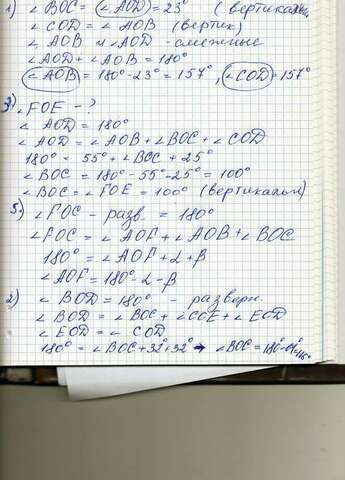 1) ∠BOC = ∠AOD = 23° (вертикальн
∠COD = ∠AOB (вертик)
∠AOB и ∠AOD - смежные
∠AOD + ∠AOB = 180°
∠AOB = 180° - 23° = 157°, ∠COD = 157°
3) ∠FOE - ?
∠AOD = 180°
∠AOD = ∠AOB + ∠BOC + ∠COD
180° = 55° + ∠BOC + 25°
∠BOC = 180° - 55° - 25° = 100°
∠BOC = ∠FOE = 100° (вертикальн)
5. ∠FOC - разв. = 180°
∠FOC = ∠AOF + ∠AOB + ∠BOC
180° = ∠AOF + α + β
∠AOF = 180° - α - β
2) ∠BOD = 180° - разверн.
∠BOD = ∠BOC + ∠COE + ∠EOD
∠EOD = ∠COD
180° = ∠BOC + 32° + 32° → ∠BOC = 180° - 64° = 116°